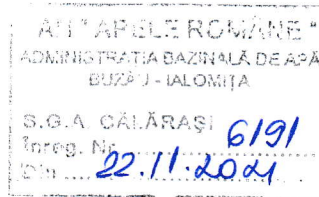 AN "APELE ROMÂNE"
ADMINISTRAȚIA BAZINALĂ DE APĂ
BUZĂU - IALOMIȚA
S.G.A. CĂLĂRAȘI
Înreg. Nr. 6191
Din 22.11.2021